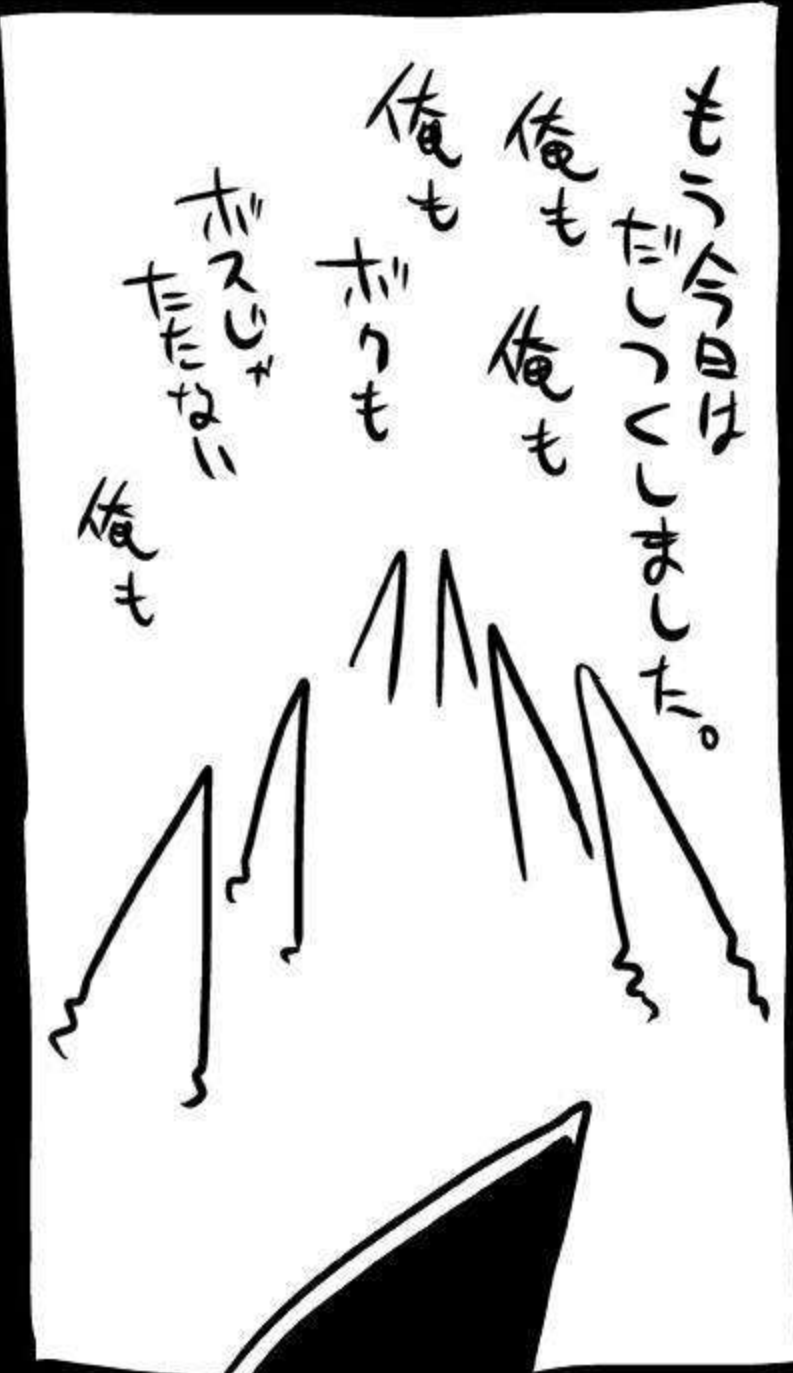 もう今日は
だしつくしました。
俺も
俺も
俺も
ボクも
ボスじゃ
たたない
俺も